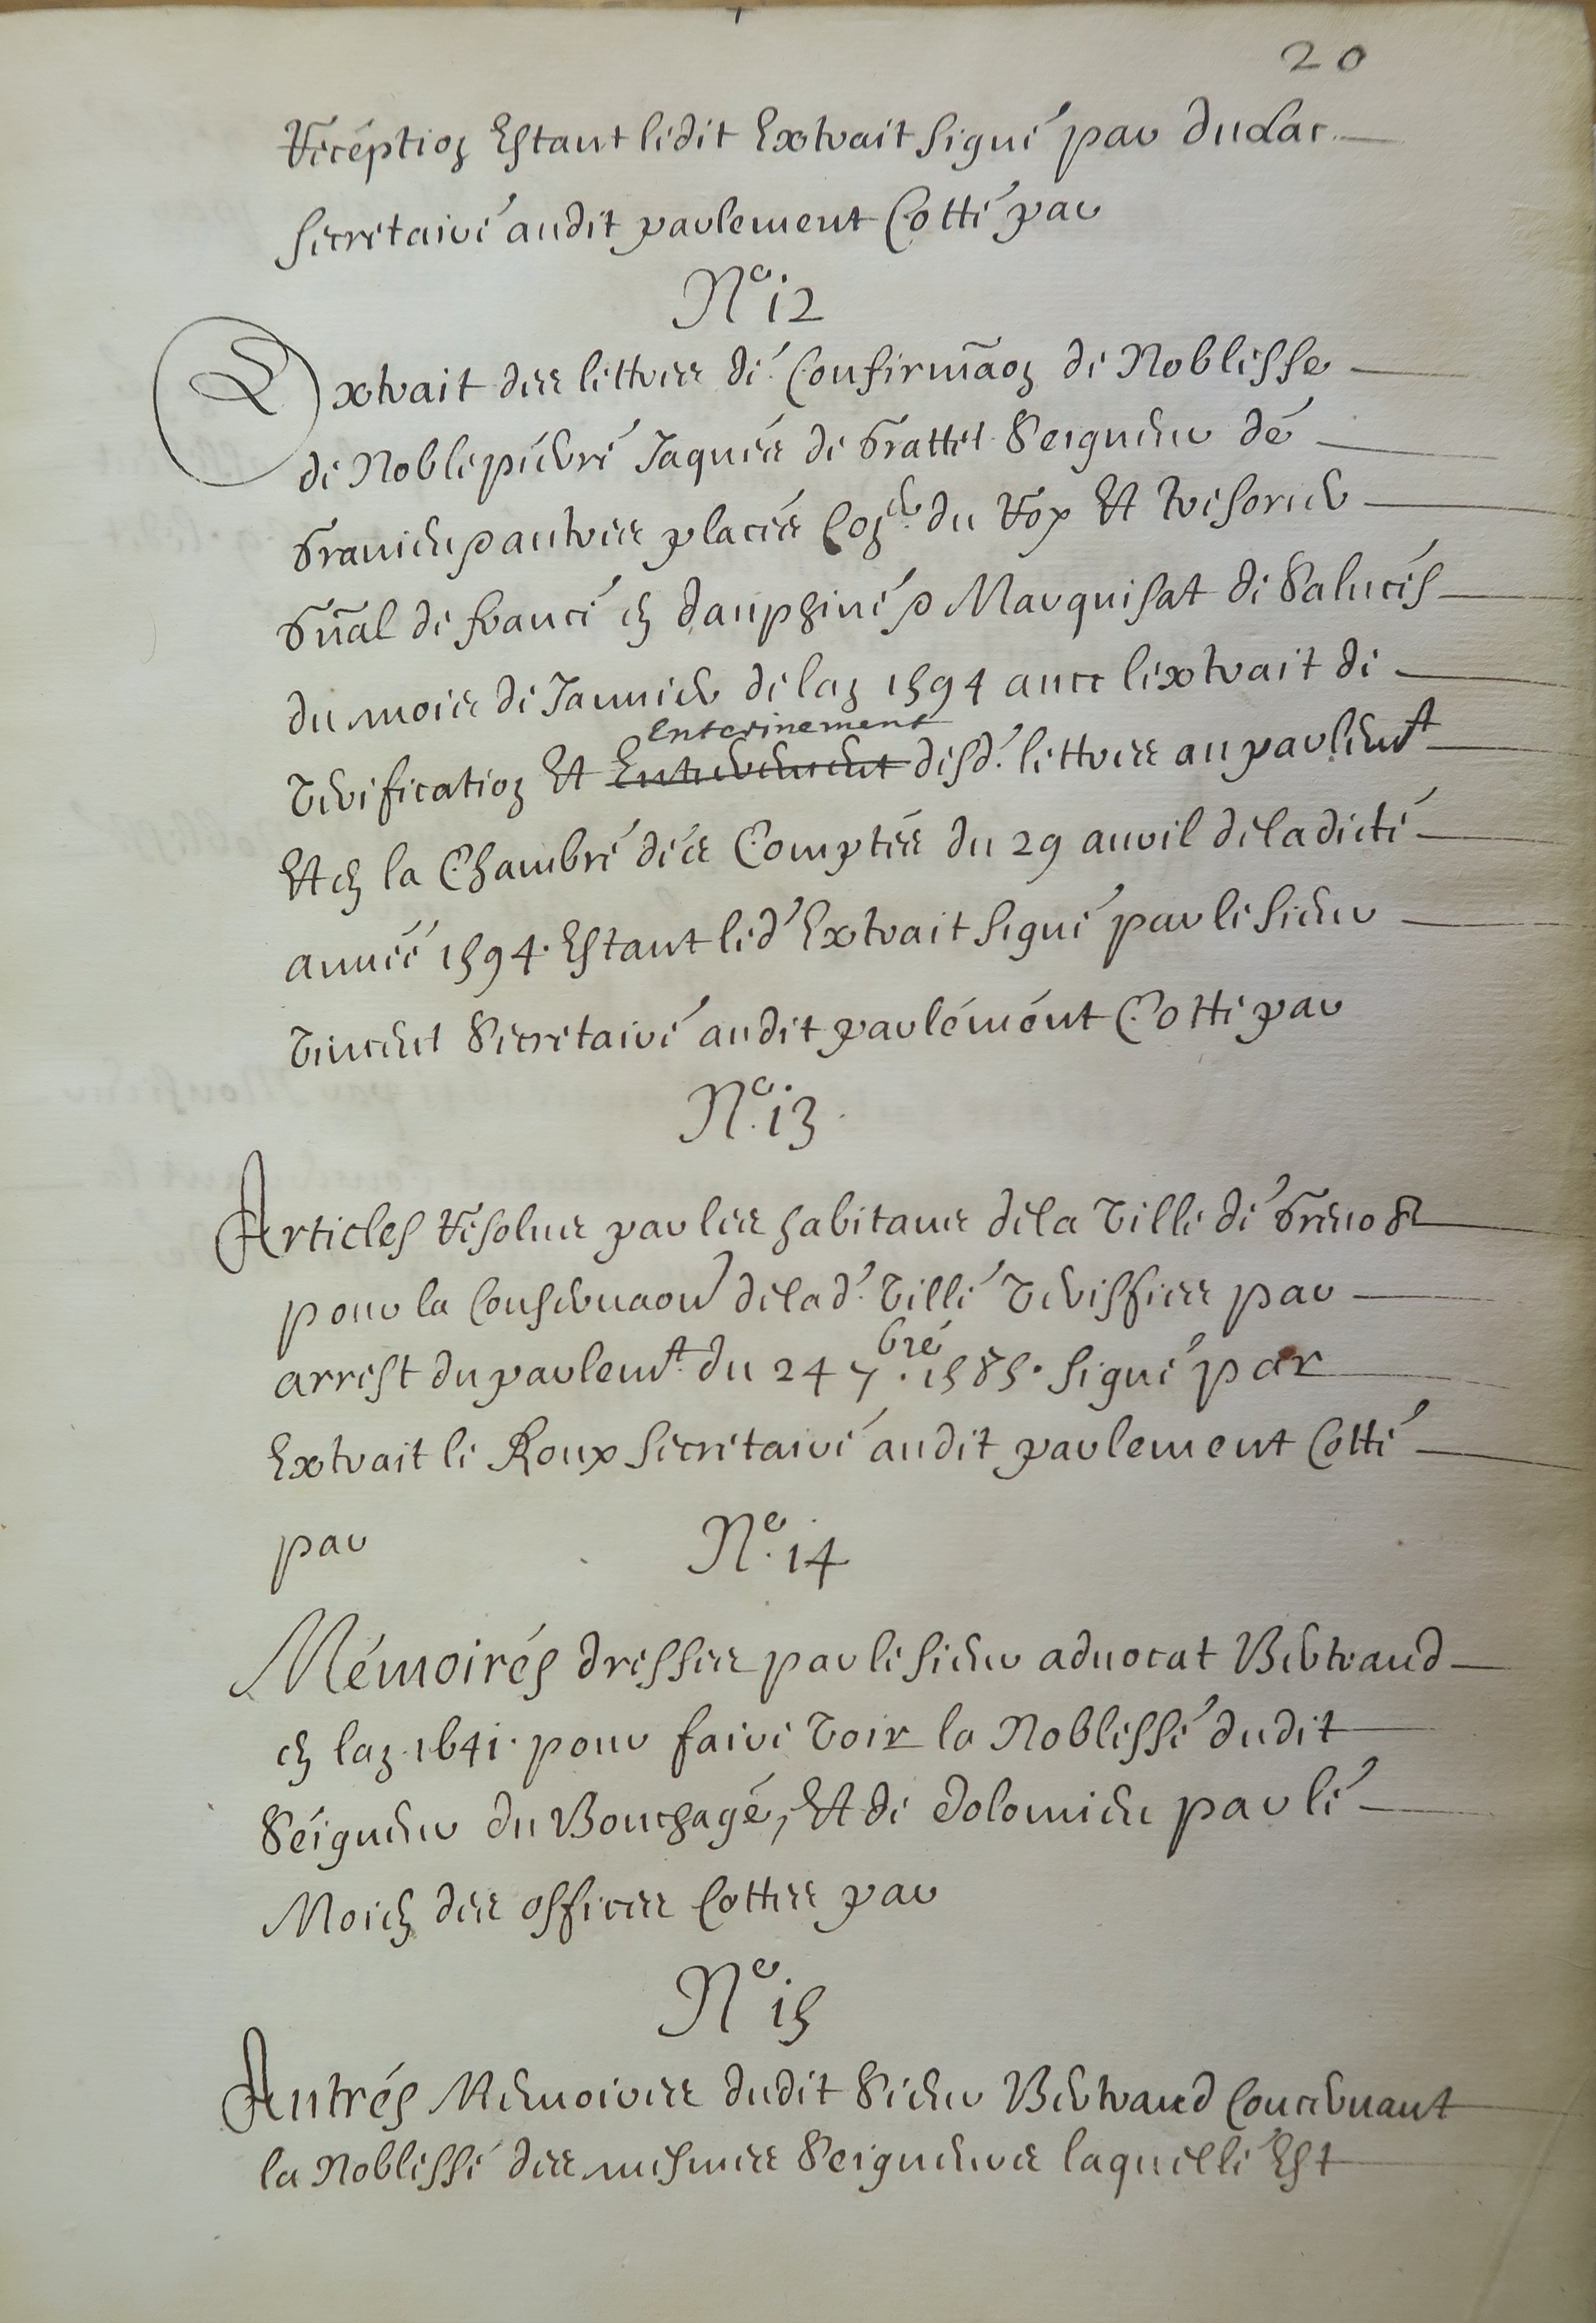 20
Réception Estant ledit Extrait signé par du Lac
secretaire audit parlement Cotté par
N° 12
Extrait des lettres de Confirmãon de Noblesse
de Noble pierre Jaques de Grattet Seigneur de
Granieu & autres places Con.er du Roy Et tresorier
gñal de france en dauphiné & Marquisat de Saluces
du mois de Janvier de lan 1594 avec lextrait de
Verification Et Enterinement
Enterement desd. lettres au parlem.t
Et en la Chambre des Comptes du 29 avril de ladicte
année 1594. Estant led. Extrait signé par le sieur
Vincent Secretaire audit parlement Cotté par
N° 13
Articles Resolus par les habitans de la Ville de Grenob
pour la Conservaon de lad. Ville Veriffies par
arrest du parlem.t du 24 7.bre 1585. signé par
Extrait le Roux secretaire audit parlement Cotté
par N° 14
Mémoires dresses par le sieur advocat Bertrand
en lan 1641. pour faire Voir la Noblesse dudit
Seigneur du Bouchage, Et de dolomieu par le
Moien des offices Cottes par
N° 15
Autres Memoires dudit Sieur Bertrand Concernant
la Noblesse des mesmes Seigneurs laquelle Est